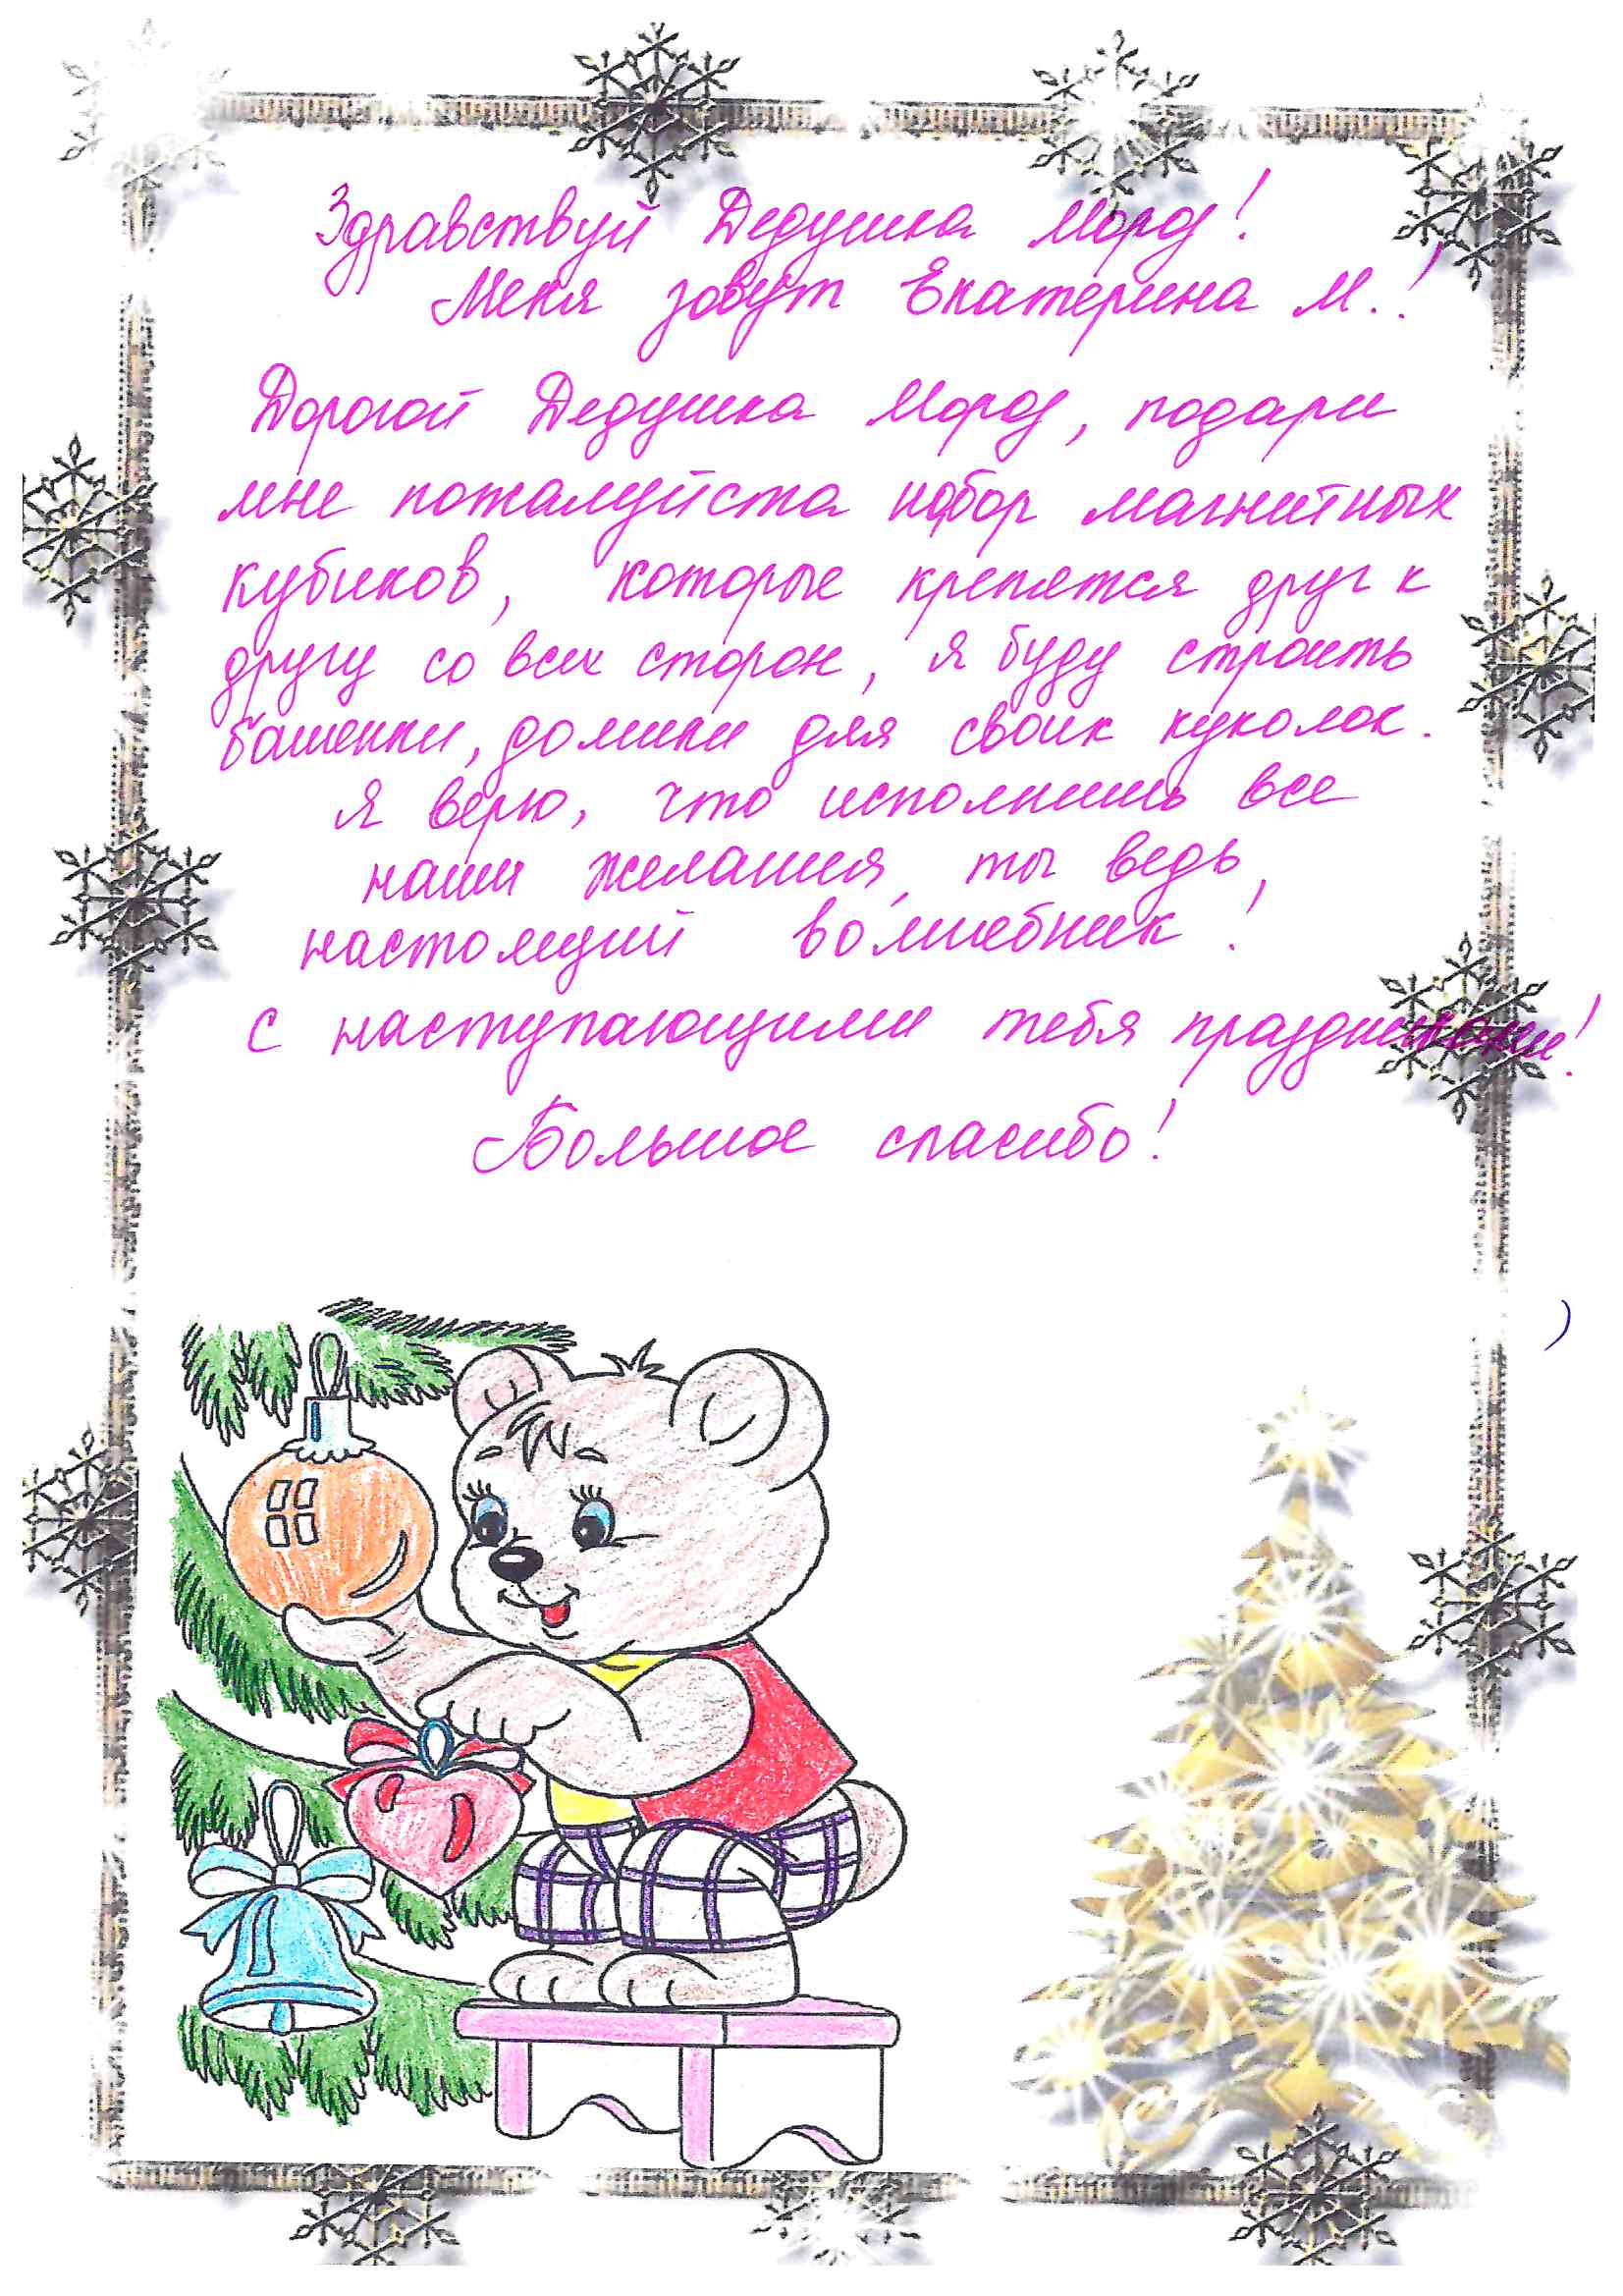 Здравствуй Дедушка Мороз!
Меня зовут Екатерина М.!
Дорогой Дедушка Мороз, подари
мне пожалуйста набор магнитных
кубиков, которые крепятся друг к
другу со всех сторон, я буду строить
башенки, домики для своих куколок.
Я верю, что исполнишь все
наши желания, ты ведь,
настоящий волшебник!
С наступающими тебя праздниками!
Большое спасибо!